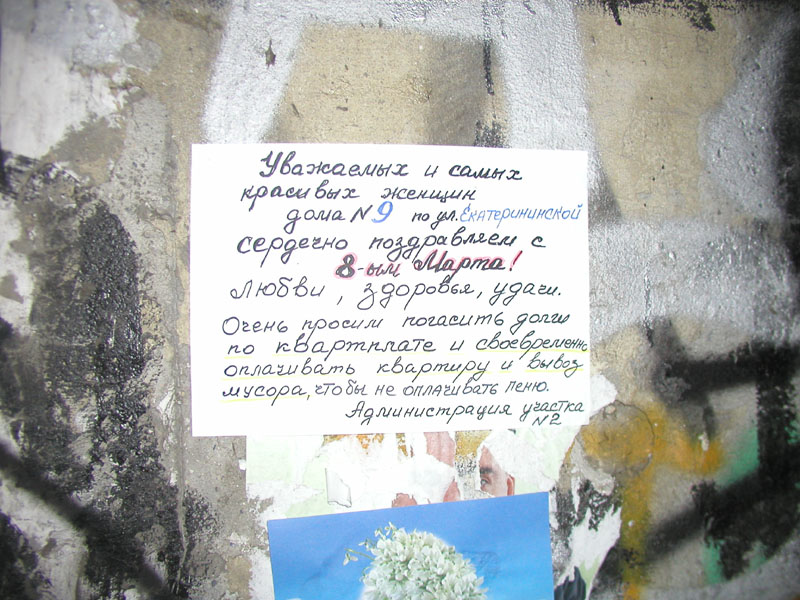 Уважаемых и самых
красивых женщин
дома N 9 по ул. Екатерининской
сердечно поздравляем с
8-ым Марта!
Любви, здоровья, удачи.
Очень просим погасить долги
по квартплате и своевременно
оплачивать квартиру и вывоз
мусора, чтобы не оплачивать пеню.
Администрация участка
N2